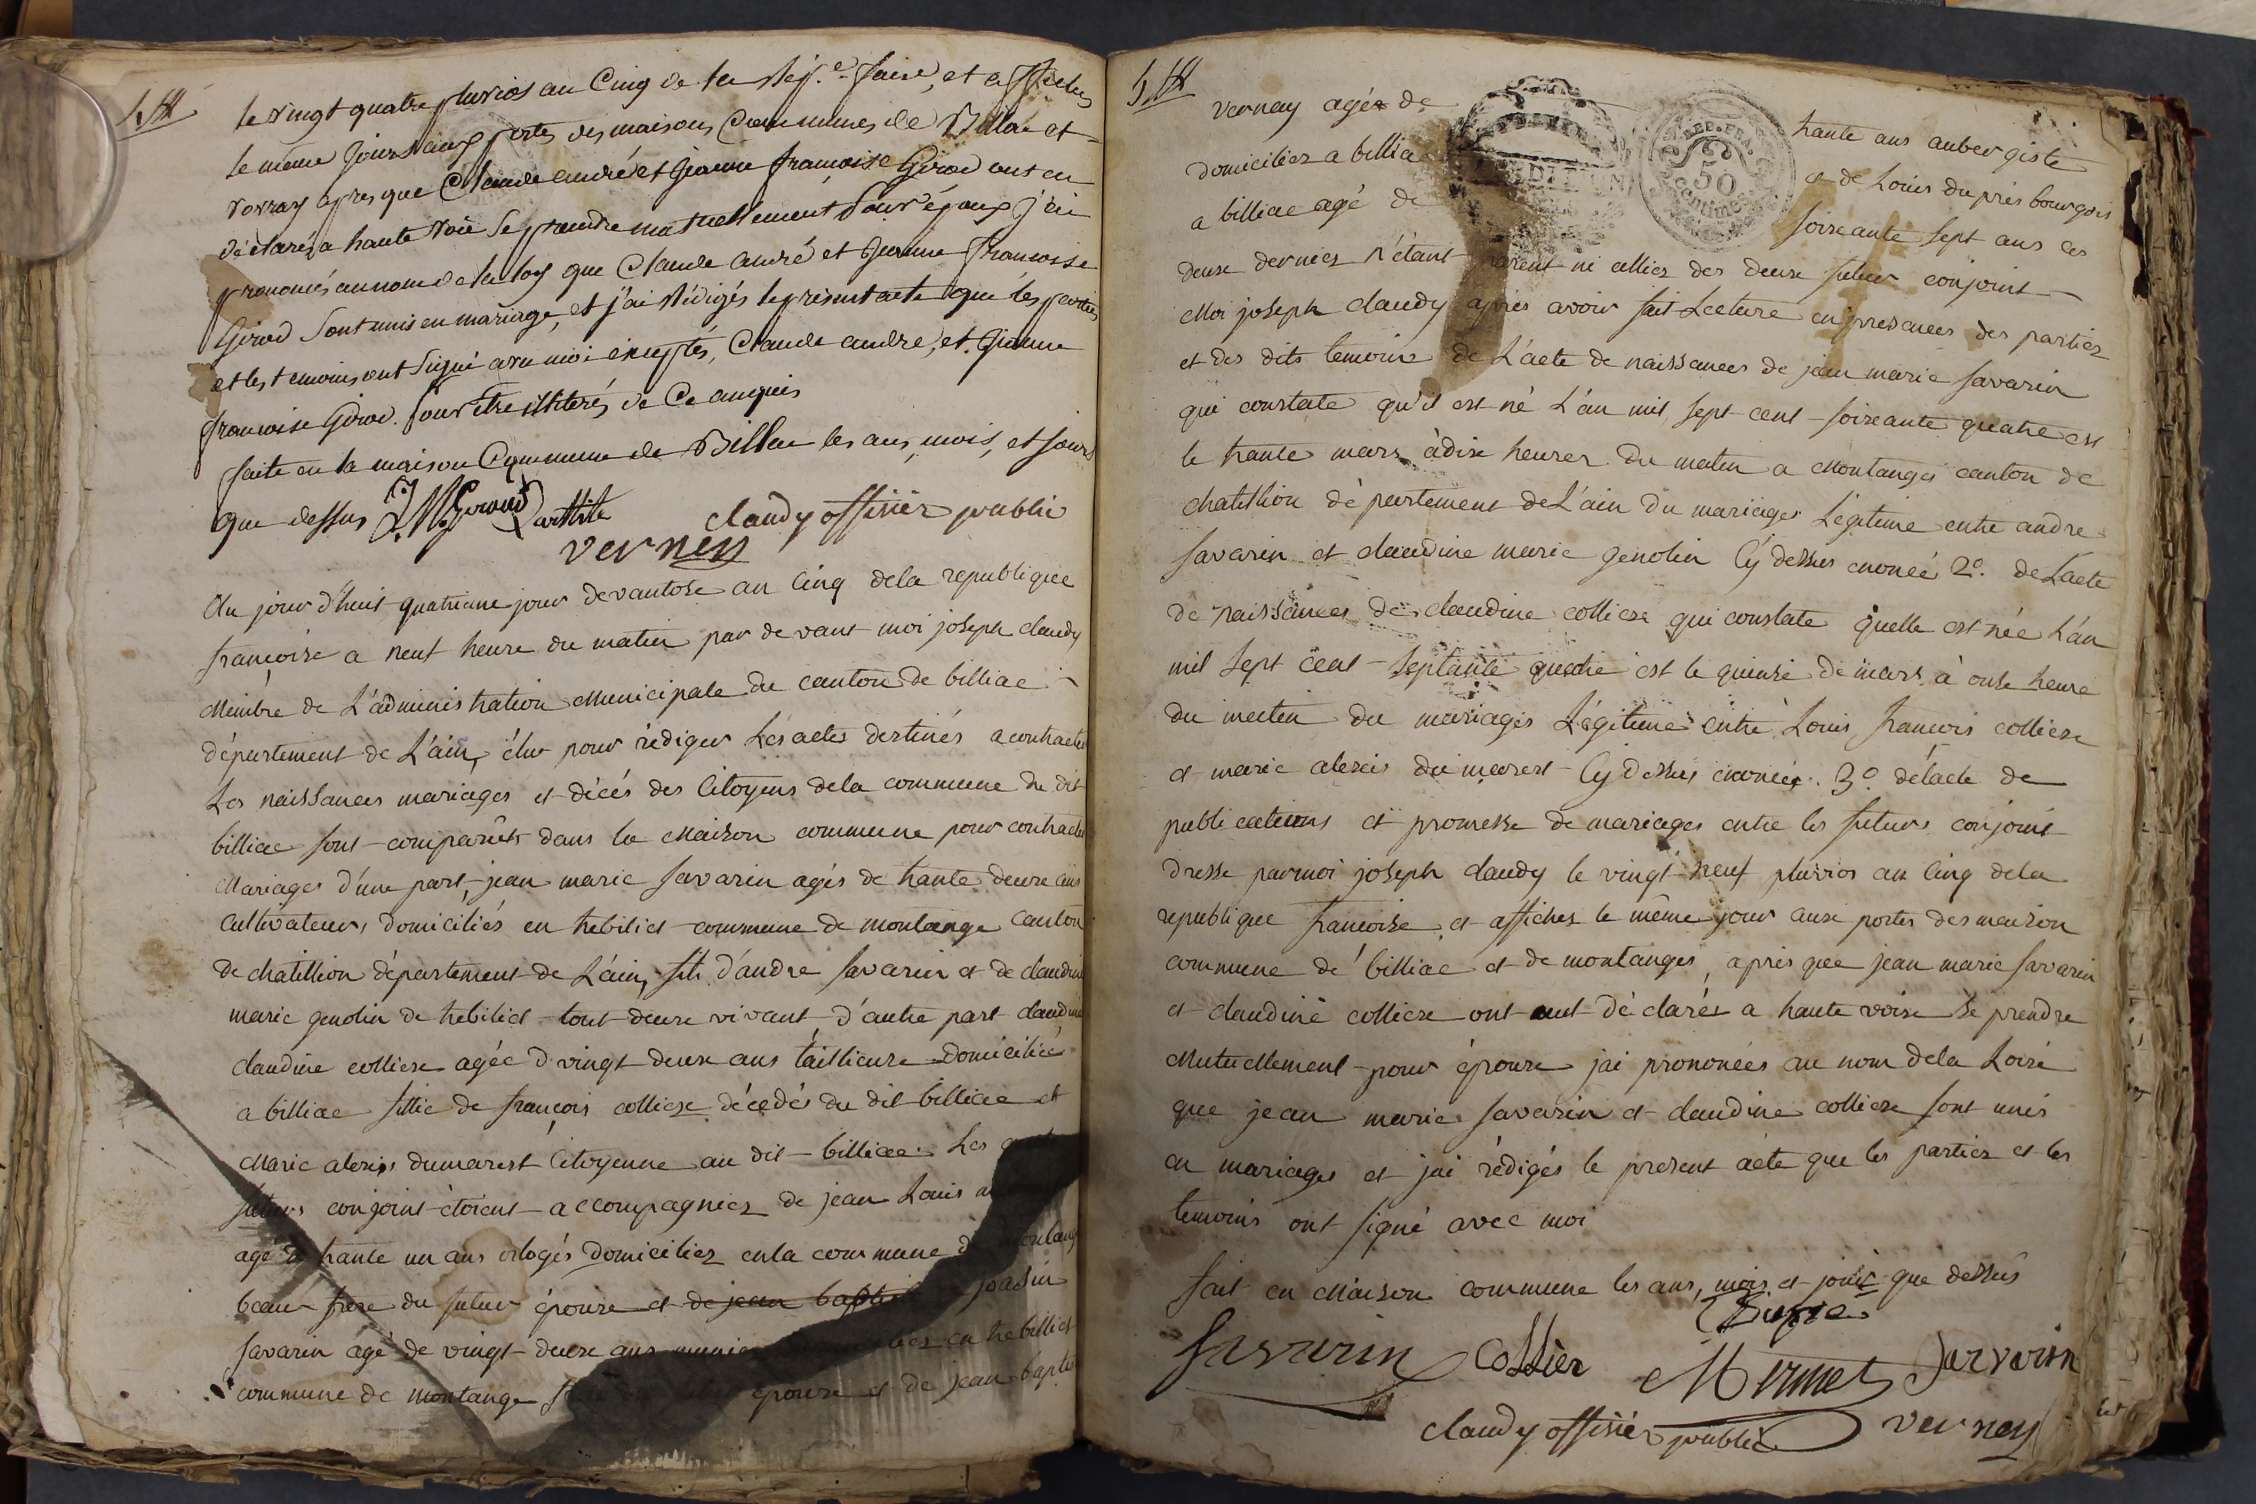 le vingt quatre pluvios an Cinq de la Rép.e faire, et affichés
le même jours aux portes des maisons Communes de Billiac et
vovray apres que Claude andré et jeanne francoise Girod ont eu
déclarés a haute voie Se prendre mutuellement pour époux j'ai
prononcés au nom de la loy que Claude andré et Jeanne francoise
Girod Sont unis en mariage, et j'ai Rédigés le present acte que les parties
et les temoins ont Signé avec moi éxceptés, Claude andre, et Jeanne
francoise Girod. pour etre illiterés de Ce anquis
faite en la maison Commune de Billiac les ans, mois, et jours
que dessus
claudy offisier public
verney
Au jour d'huit quatrieme jour de vantose an Cinq de la republique
francoise a neuf heure du matin par devant moi joseph claudy
Membre de L'administration Municipale du canton de billiac
département de L'ain, élu pour rédiger Les actes destinés a contracter
Les naissances mariages et décés des Citoyens de la commune du dit
billiac sont comparûts dans la Maison commune pour contracter
Mariages d'une part, jean marie Savarin agés de trante deuxe ans
Cultivateur, domiciliés en trebiliet commune de montange Canton
de chatillion département de L'ain, fils d'andre Savarin et de claudine
marie genolin de trebiliet tout deuxe vivant, d'autre part claudine
claudine colliere agée d vingt deuxe ans taillieuse domiciliée
a billiac fillie de françois colliere décedés du dit billiac et
Marie alexis dumarest Citoyenne au dit billiac. Les
futurs conjoint étoient accompagniez de jean Louis
agé de trante un ans orlogés domiciliez en la commune de
beau frere du futur épouxe et de jean baptist joasin
Savarin agé de vingt deuxe ans en trebilliet
commune de montange épouxe et de jean baptiste
vernay agés de trante ans aubergiste
domiciliez a billiac et de Louis duprés bourgois
a billiac agé de soixeante sept ans ces
deuxe derniez n'étant parent ni alliez des deuxe futur conjoint
Moi joseph claudy après avoir fait Lecture en presances des partiez
et des dits temoins de L'acte de naissances de jean marie Savarin
qui constate qu'il est né L'an mil sept cent soixeante quatre est
le trante mars à dix heures du matin a Montanges canton de
chatillion département de L'ain du mariages Légitime entre andre
Savarin et claudine marie genolin Cy dessus enonée 2o. de Lacte
de naissances de claudine colliere qui constate quelle est née L'an
mil sept cent septante quatre est le quinze de mars à onze heure
du matin du mariages Légitime entre Louis francois colliere
et marie alexis dumarest Cy dessus enonée. 3o. délacte de
publications et promesse de mariages entre les futurs conjoint
dresse par moi joseph claudy le vingt neuf pluvios an Cinq dela
republique francoise et affichez le même jour auxe portes des maison
commune de billiac et de montanges, apres que jean marie Savarin
et claudine colliere ont eut déclarés a haute voixe se prendre
Mutuellement pour épouxe jai prononées au nom dela Loixe
que jean marie Savarin et claudine colliere sont unis
en mariages et jai rédigés le present acte que les partiez et les
temoins ont signé avec moi
fait en Maison commune les ans, mois et jour que dessus
Dupré
Savarin Collier Mermet Savarin
claudy offisier public verney